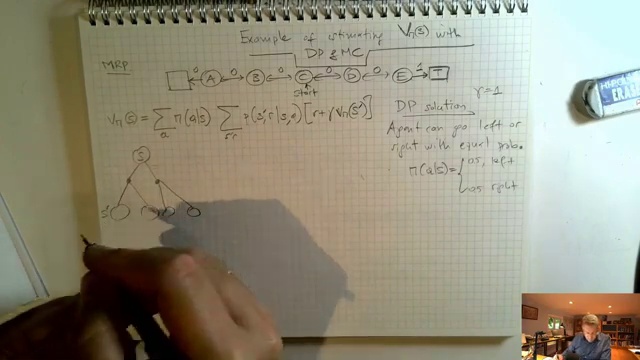 Example of estimating Vπ(s) with
DP & MC
MRP
0 A 0 B 0 C 0 D 0 E 1 T
start
Vπ(s) = Σa π(a|s) Σs',r p(s',r|s,a) [r+γ Vπ(s')]
DP solution γ=1
Agent can go left or
right with equal prob.
π(a|s) = { 0.5, left
0.5 right
S
S'
ERAS